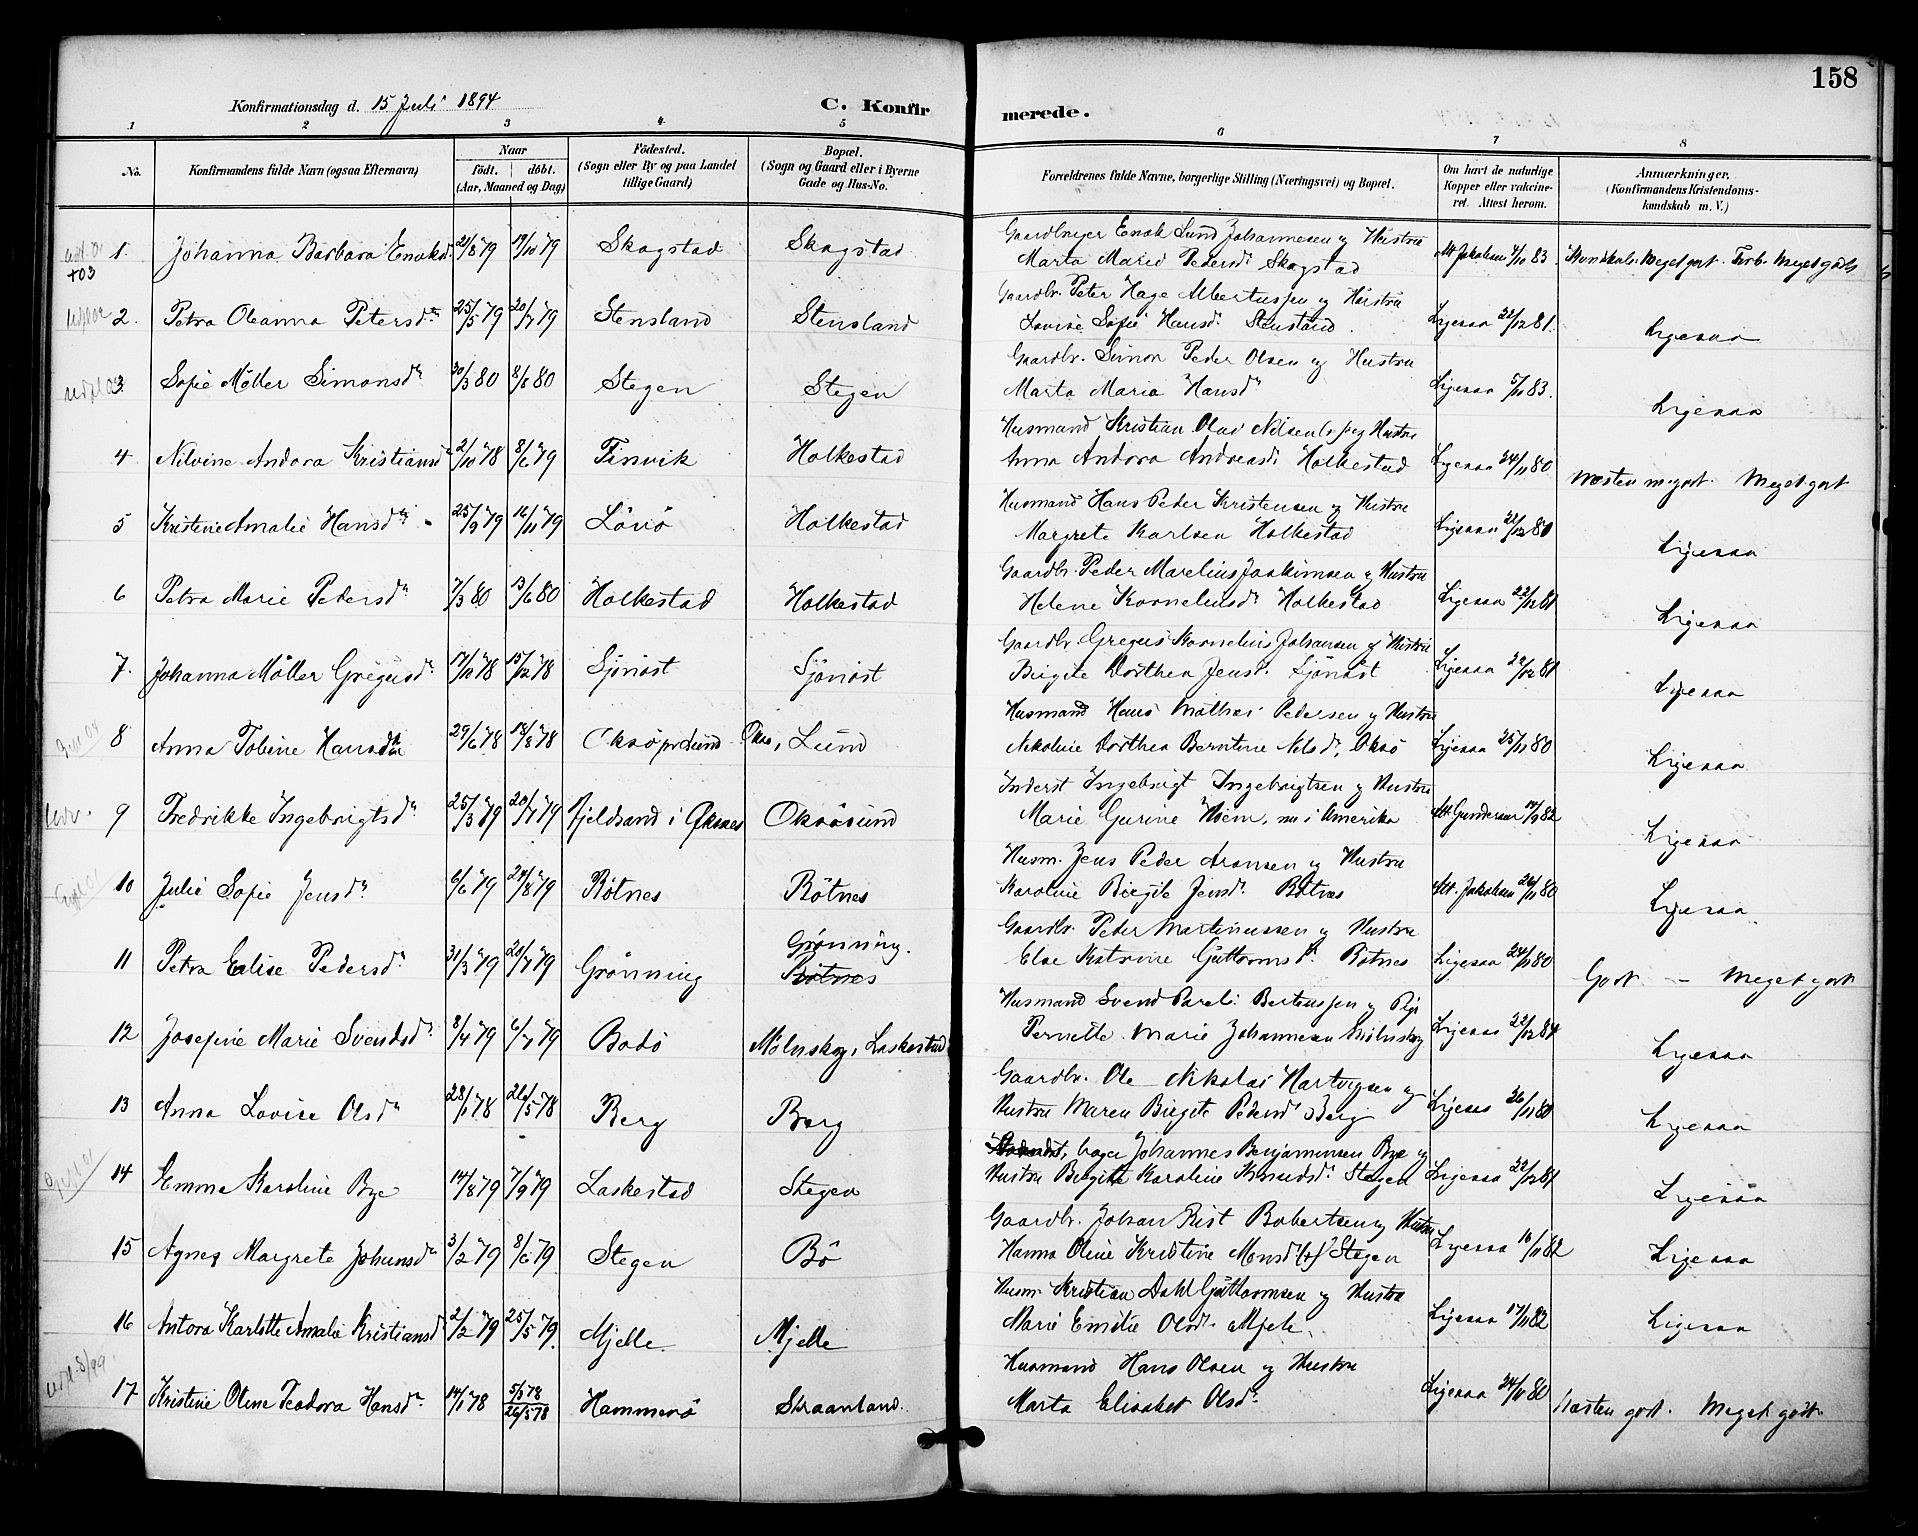 158
Konfirmationsdag d. 15 Juli 1894
C. Konfirmerede.
1 2 3 4 5 6 7 8
No. Konfirmandens fulde Navn (ogsaa Efternavn)
Naar födt. döbt. (Aar, Maaned og Dag)
Födested. (Sogn eller By og paa Landet tillige Gaard)
Bopæl. (Sogn og Gaard eller i Byerne Gade og Hus-No.
Forældrenes fulde Navne, borgerlige Stilling (Næringsvei) og Bopæl.
Om havt de naturlige Kopper eller vakcineret. Attest herom.
Anmærkninger. (Konfirmandens Kristendomskundskab m. V.)
1. Johanna Barbara Enoksd. 21/8 79 19/10 79 Skagstad Skagstad Gaardbruger Enok Lund Johannesen og Hustru
Marta Marie Pedersdr Skagstad Att Jakobsen 4/10 83 Kundskab. Meget godt. Forh. Meget godt
2. Petra Oleanna Petersdr 25/5 79 20/7 79 Stensland Stensland Gaardbr. Peter Hage Albertussen og Hustru
Lovise Sofie Hansdr Stensland. Ligesaa 22/12 81. Ligesaa
3 Sofie Möller Simonsdr 30/3 80 8/8 80 Stegen Stegen Gaardbr. Simon Peder Olsen og Hustru
Marta Maria Hansdr Ligesaa 5/11 83. Ligesaa
4 Nilvine Andora Kristiansdr 2/10 78 8/6 79 Finvik Holkestad Husmand Kristian Olai Nilsen og Hustru
Anna Andora Andreasdr Holkestad Ligesaa 24/11 80 Næsten m. godt. Meget godt
5 Kristine Amalie Hansdr 25/9 79 16/11 79 Lövö Holkestad Husmand Hans Peder Kristensen og Hustru
Margrete Karlsen Holkestad Ligesaa 22/12 80 Ligesaa
6 Petra Marie Pedersdr 7/3 80 13/6 80 Holkestad Holkestad Gaardbr. Peder Marelius Joakimsen og Hustru
Helene Korneliusdr Holkestad Ligesaa 22/12 81 Ligesaa
7. Johanna Möller Gregusdr 17/10 78 15/12 78 Sjönöst Sjönöst Gaardbr. Gregus Kornelius Johansen og Hustru
Birgite Dorthea Jensdr. Sjönöst Ligesaa 22/12 81 Ligesaa
8 Anna Tobine Hansdtr 29/6 78 18/8 78 Oksö pr Lund Oksö, Lund Husmand Hans Mathias Pedersen og Hustru
Nikoline Dorthea Berntine Nilsdr, Oksö Ligesaa 25/11 80 Ligesaa
9 Fredrikke Ingebrigtsdr 25/3 79 20/7 79 Fjeldsand i Öksnes Oksösund Inderst Ingebrigt Ingebrigtsen og Hustru
Marie Gurine Hoem, nu i Amerika Att Gundersen 14/9 82 Ligesaa
10 Julie Sofie Jensdr 6/6 79 24/8 79 Rötnes Rötnes Husm. Jens Peder Aronsen og Hustru
Karoline Birgite Jensdr Rötnes Att. Jakobsen 26/11 80 Ligesaa.
11 Petra Elise Pedersdr 31/3 79 20/7 79 Grönning Grönning. Rötnes Gaardbr. Peder Martinussen og Hustru
Else Katrine Guttormsdr. Rötnes Ligesaa 24/11 80 Godt - Meget godt
12 Josefine Marie Svendsdr 8/4 79 6/7 79 Bodö Mölnskog, Laskestad Husmand Svend Pareli Berteussen og Pige
Pernelle Marie Johannesen Mölnskog Ligesaa 22/12 84 Ligesaa
13 Anna Lovise Olsdr 28/1 78 26/5 78 Berg Berg Gaardbr. Ole Nikolai Hartvigsen og
Hustru Maren Birgite Pedersdr Berg Ligesaa 26/11 80 Ligesaa
14 Emma Karoline Bye 14/8 79 7/9 79 Laskestad Stegen Johannes Benjaminsen Bye og
Hustru Birgitte Karoline Knudsdr. Stegen Ligesaa 22/12 81 Ligesaa
15 Agnes Margrete Johansdr 3/2 79 8/6 79 Stegen Bö Gaardbr. Johan Rist Robertsen og Hustru
Hanna Oline Kristine Monsdr (+) Stegen Ligesaa 16/11 82 Ligesaa
16 Antora Karlotte Amalie Kristiansdr 2/2 79 25/5 79. Mjelle. Mjelle Husm. Kristian Dahl Guttormsen og Hustru
Marie Emilie Olsdr. Mjele. Ligesaa 17/11 82 Ligesaa
17. Kristine Oline Teodora Hansdr 14/1 78 5/5 78 26/5 78 Hammerö Skraanland. Husmand Hans Olsen og Hustru
Marta Elisabet Olsdr Ligesaa 24/11 80 Næsten godt. Meget godt.